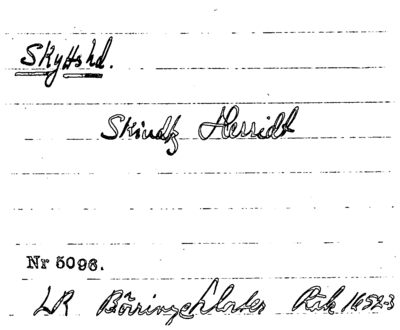 Skytts hd.
Skindtz Herridt
Nr 5096.
LR Börringekloster Räk 1652-3